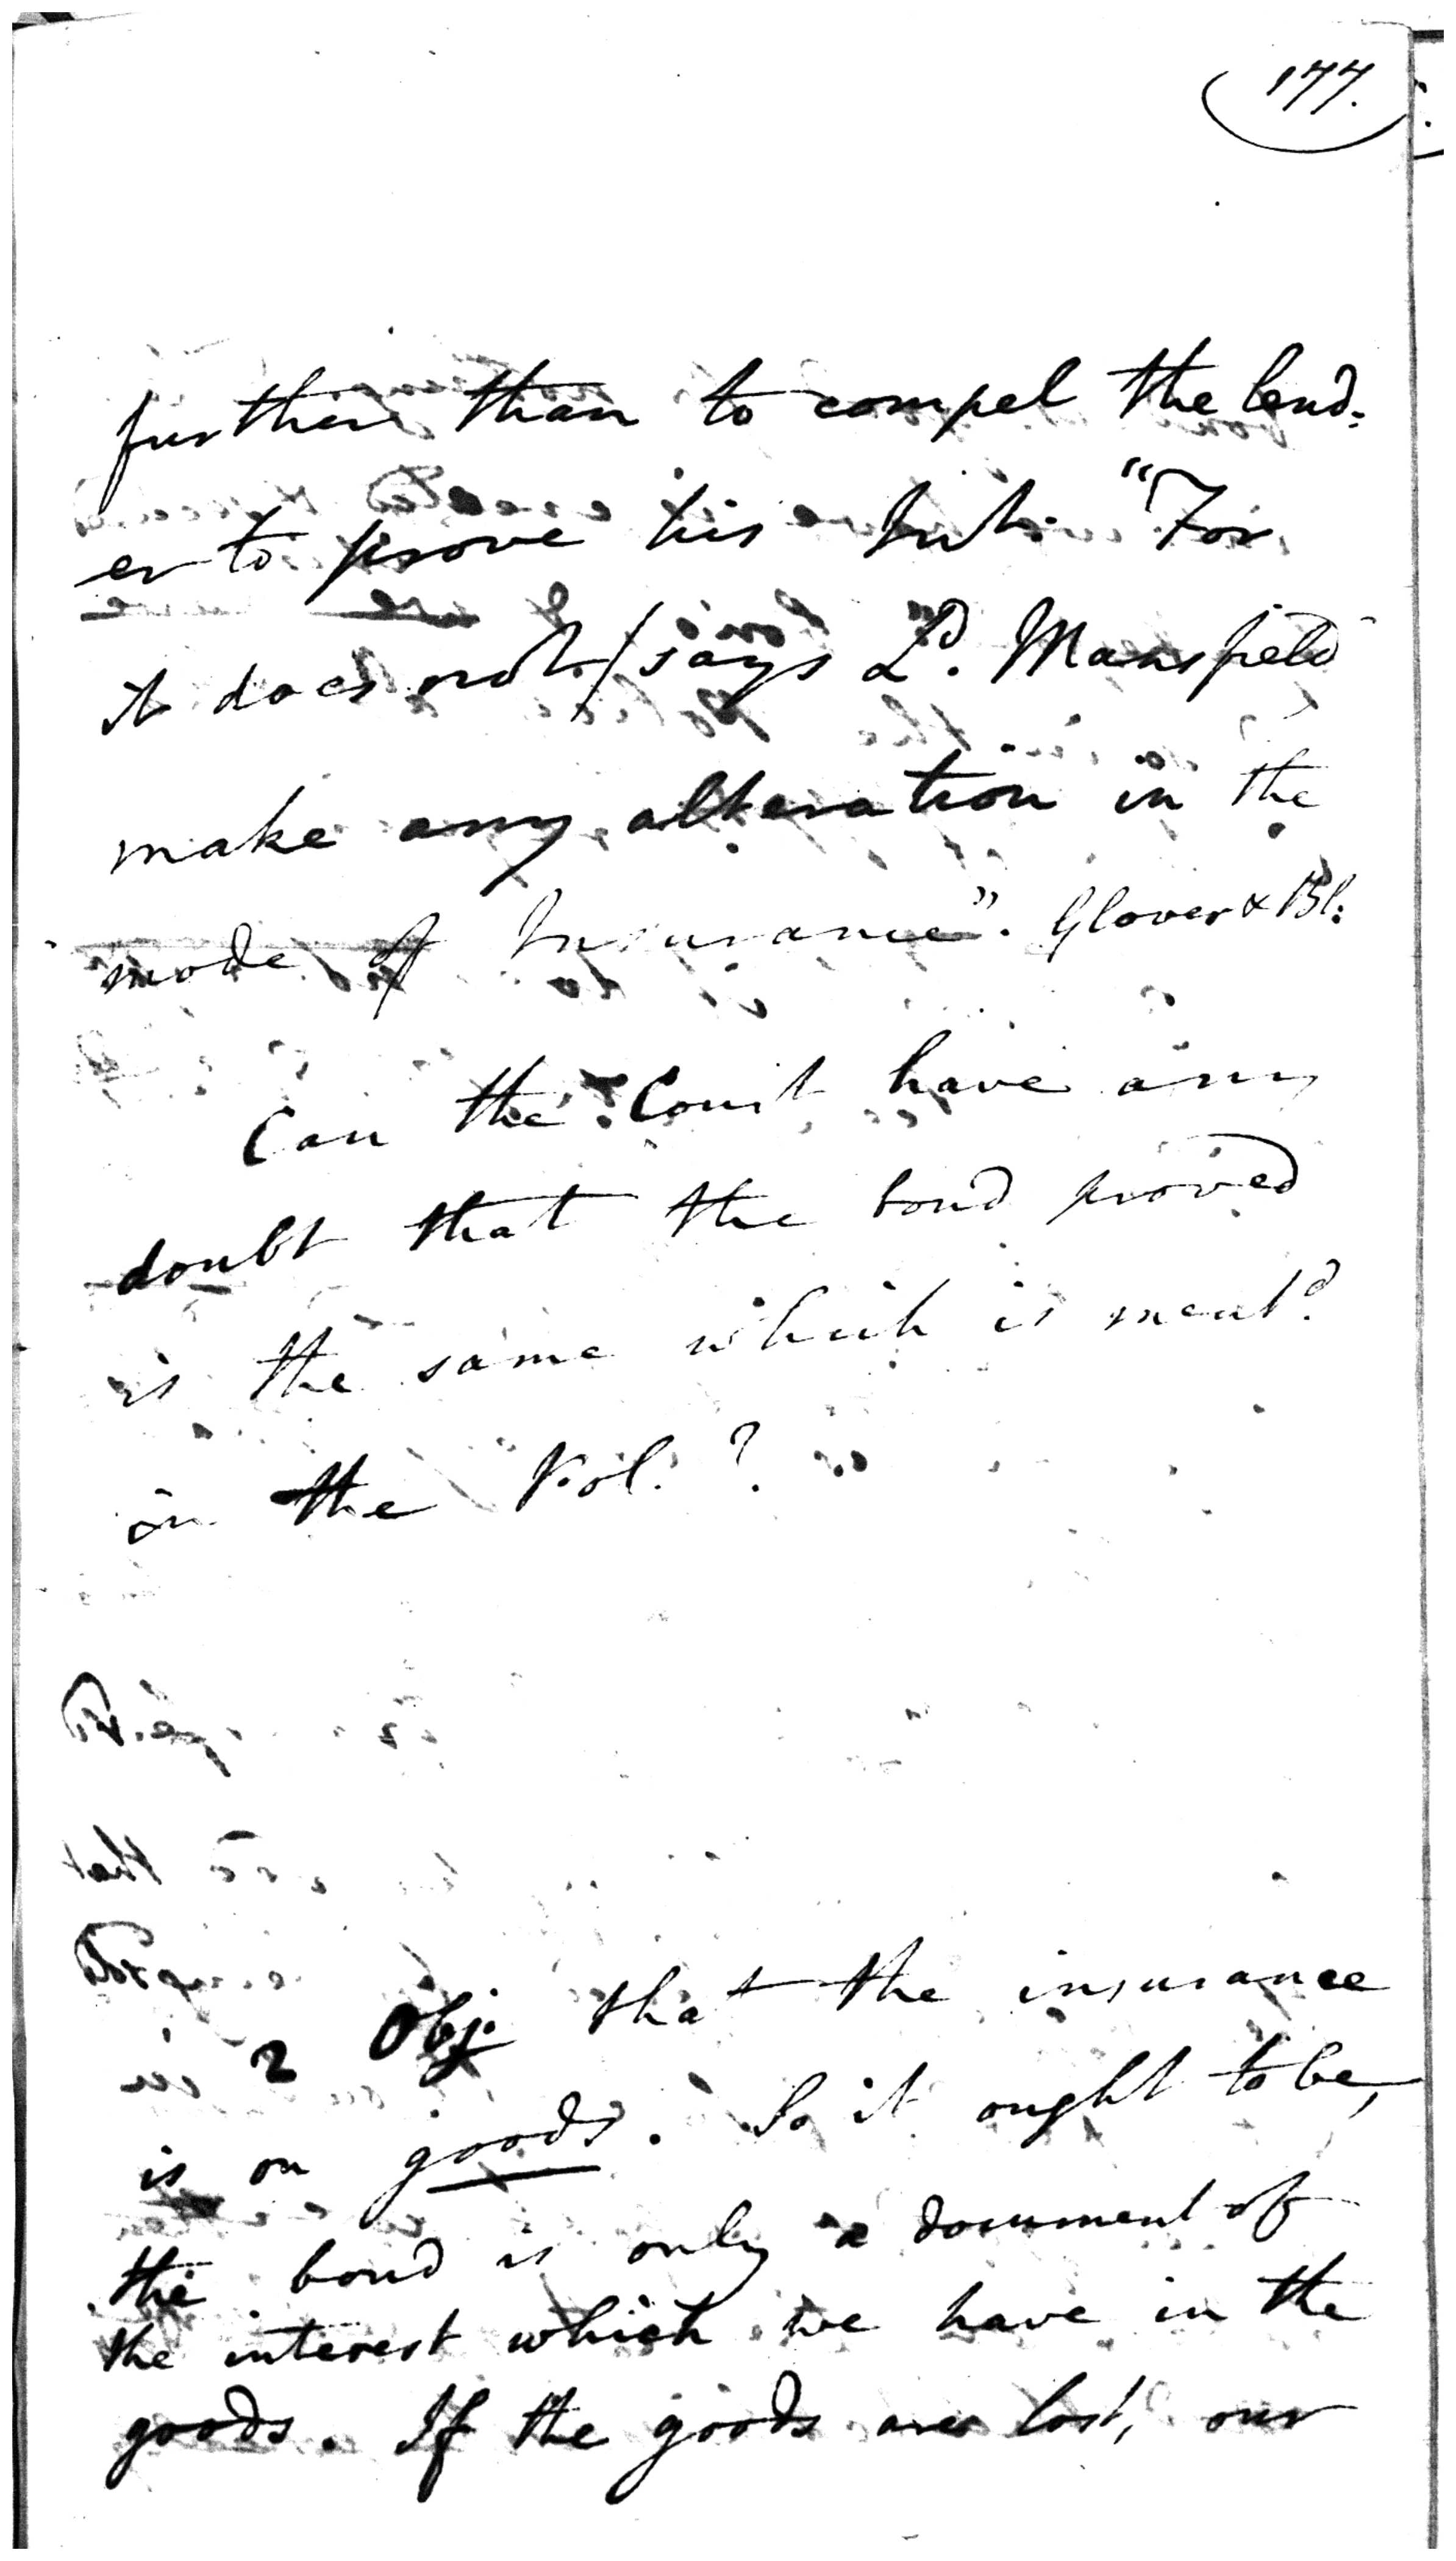 177.
further than to compel the lend:
er to prove his Int. "For
it does not/says Ld. Mansfield
make any alteration in the
mode of Insurance". Glover & Bl:
Can the Court have any
doubt that the bond proved
is the same which is ment.d
in the Pol. ?
2 Obj. that the insurance
is on goods. So it ought to be,
the bond is only a document of
the interest which we have in the
goods. If the goods are lost, our